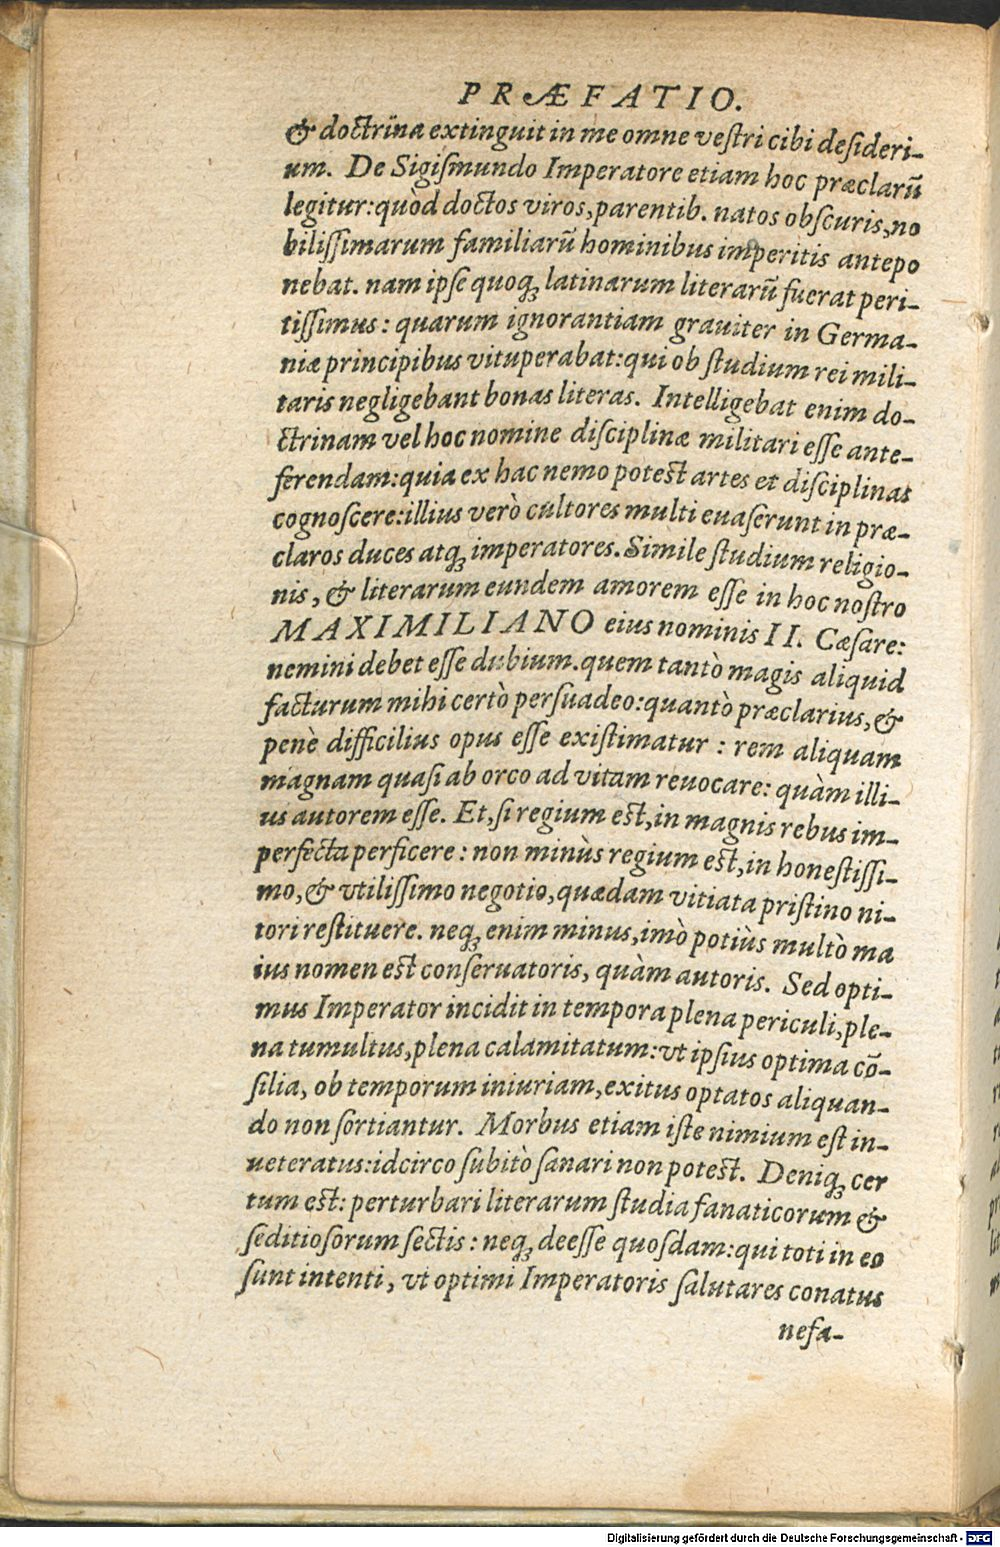 PRÆFATIO.
& doctrina extinguit in me omne vestri cibi desideri-
um. De Sigismundo Imperatore etiam hoc præclarũ
legitur: quòd doctos viros, parentib. natos obscuris, no
bilissimarum familiarũ hominibus imperitis antepo
nebat. nam ipse quoq; latinarum literarũ fuerat peri-
tissimus: quarum ignorantiam grauiter in Germa-
niæ principibus vituperabat: qui ob studium rei mili-
taris negligebant bonas literas. Intelligebat enim do-
ctrinam vel hoc nomine disciplinæ militari esse ante-
ferendam: quia ex hac nemo potest artes et disciplinas
cognoscere: illius verò cultores multi euaserunt in præ-
claros duces atq; imperatores. Simile studium religio-
nis, & literarum eundem amorem esse in hoc nostro
MAXIMILIANO eius nominis II. Cæsare:
nemini debet esse dubium. quem tantò magis aliquid
facturum mihi certò persuadeo: quantò præclarius, &
penè difficilius opus esse existimatur: rem aliquam
magnam quasi ab orco ad vitam reuocare: quàm illi-
us autorem esse. Et, si regium est, in magnis rebus im-
perfecta perficere: non minùs regium est, in honestissi-
mo, & vtilissimo negotio, quædam vitiata pristino ni-
tori restituere. neq; enim minus, imò potiùs multò ma
ius nomen est conseruatoris, quàm autoris. Sed opti-
mus Imperator incidit in tempora plena periculi, ple-
na tumultus, plena calamitatum: vt ipsius optima cõ-
silia, ob temporum iniuriam, exitus optatos aliquan-
do non sortiantur. Morbus etiam iste nimium est in-
ueteratus: idcirco subitò sanari non potest. Deniq; cer
tum est: perturbari literarum studia fanaticorum &
seditiosorum sectis: neq; deesse quosdam: qui toti in eo
sunt intenti, vt optimi Imperatoris salutares conatus
nefa-
Digitalisierung gefördert durch die Deutsche Forschungsgemeinschaft - DFG